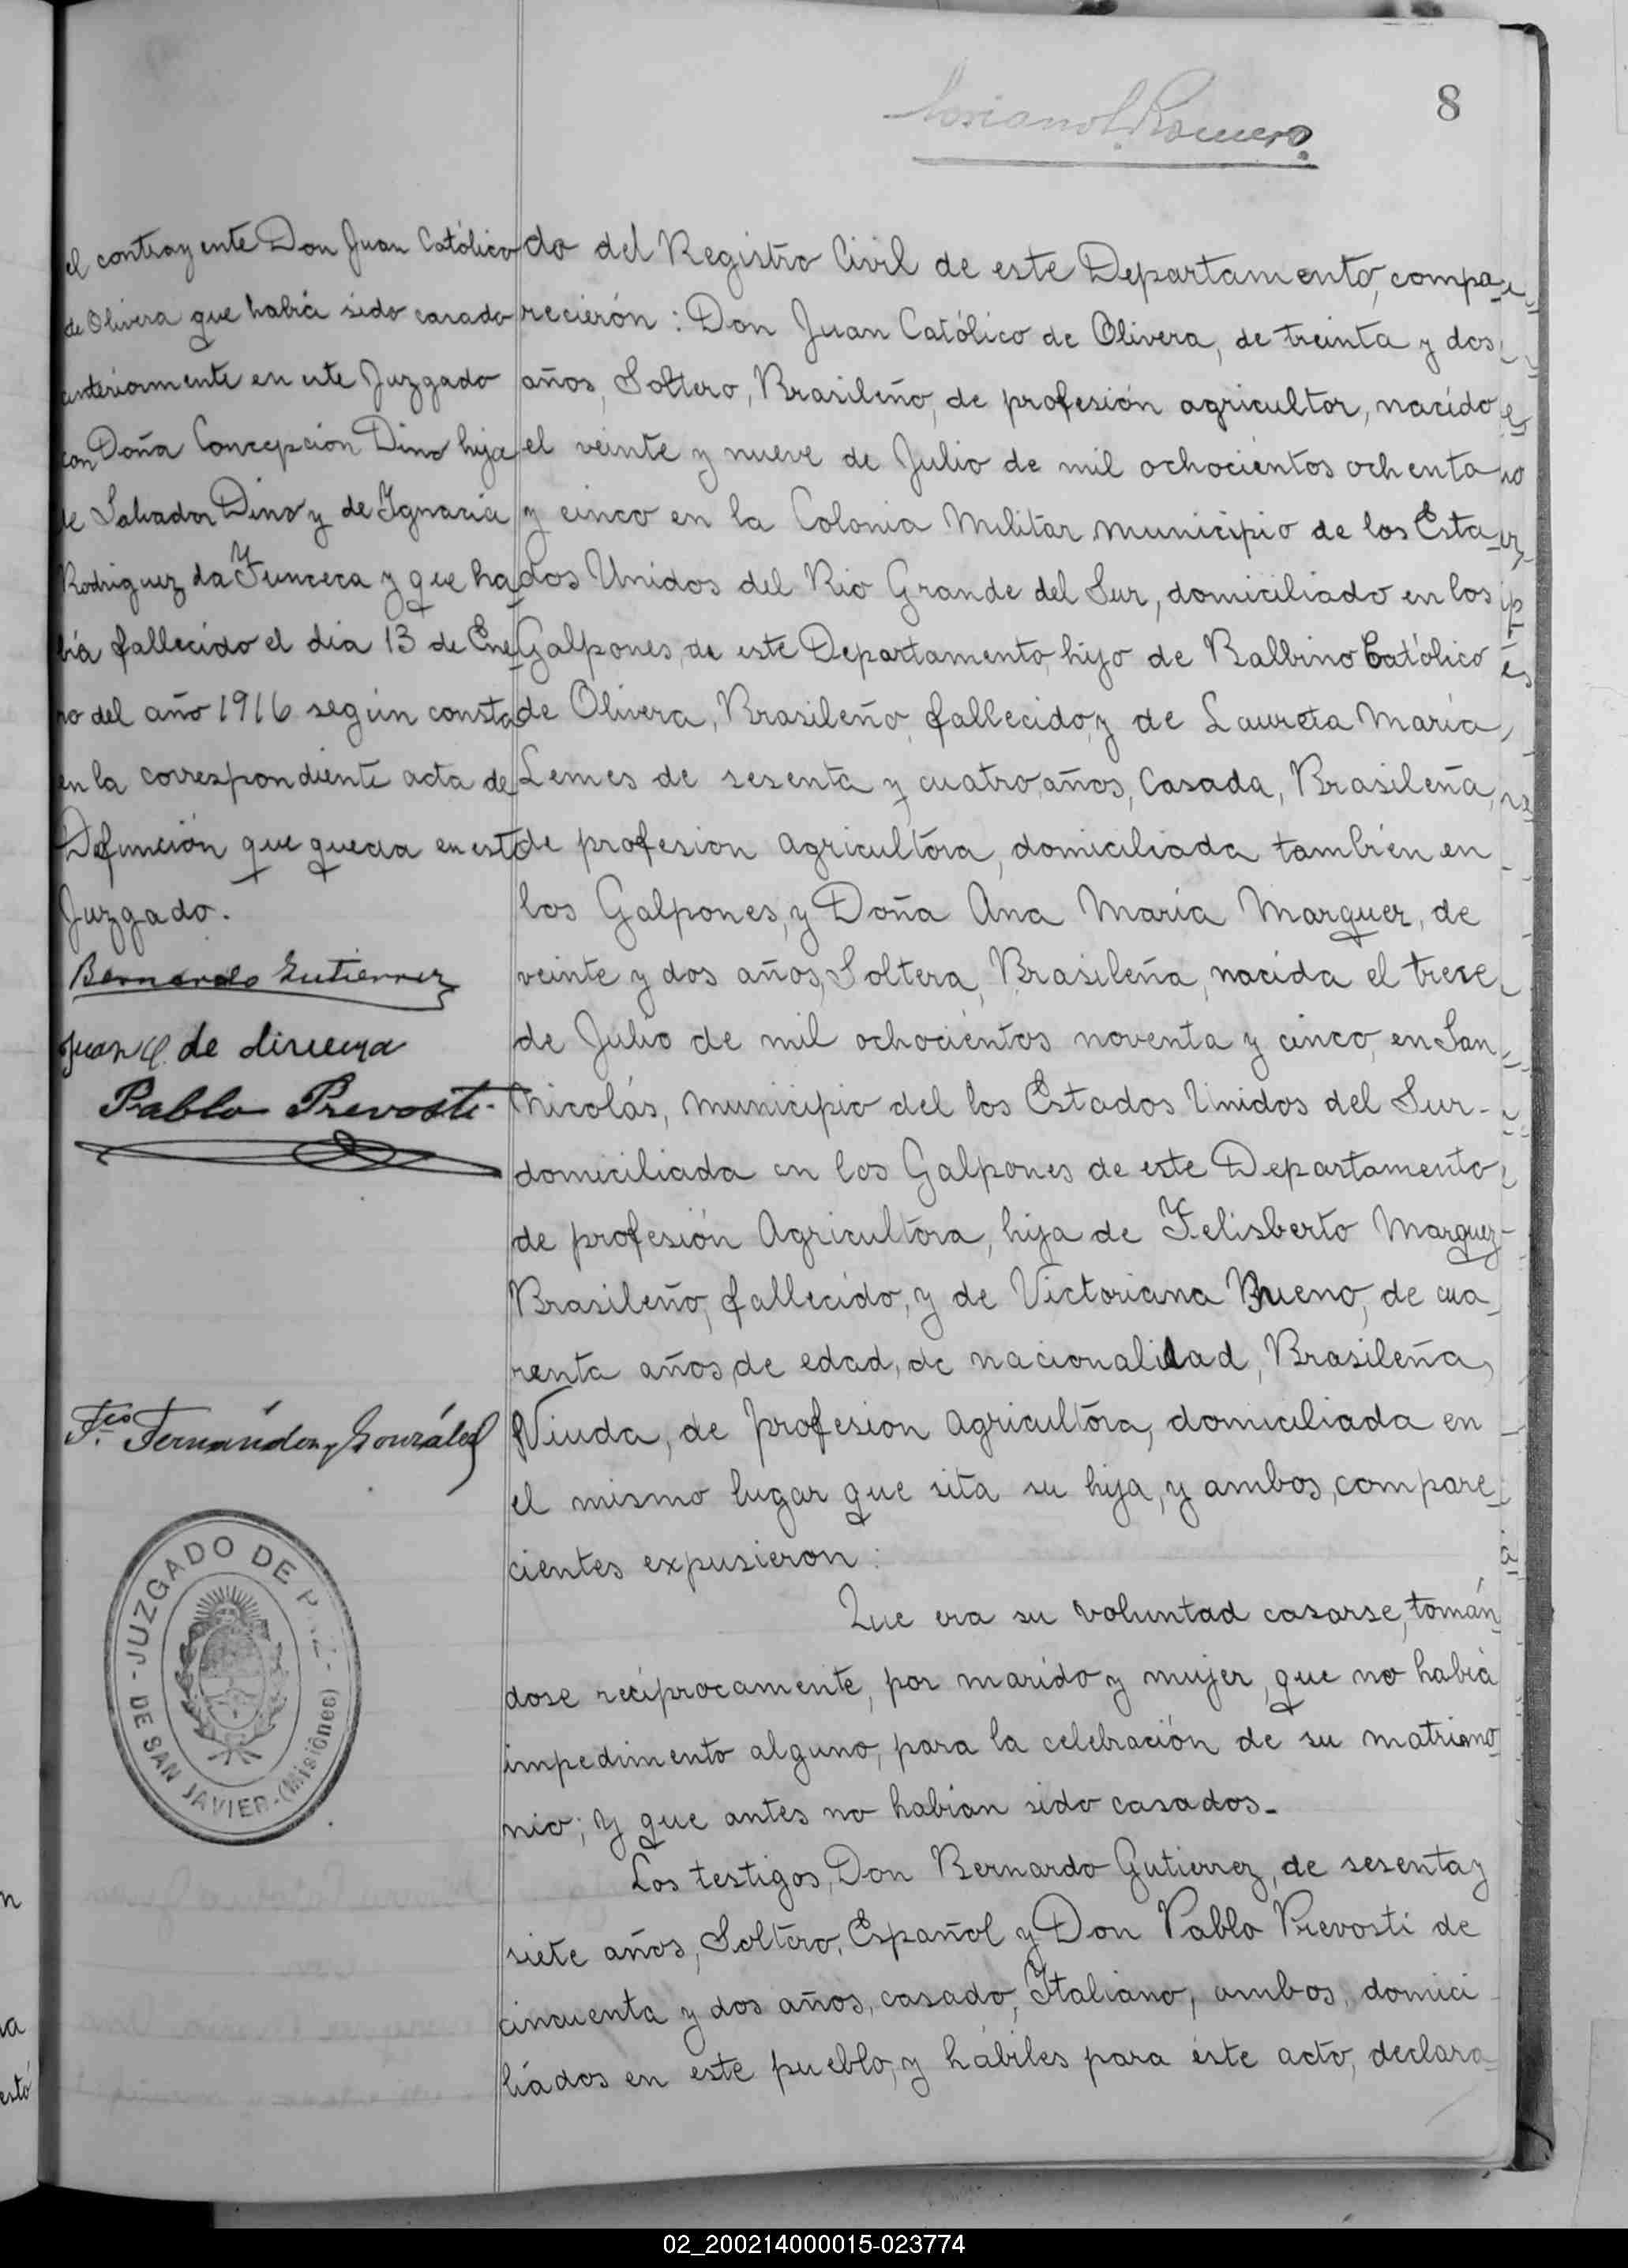 8
Romero.
el contrayente Don Juan Católico
de Olivera que habia sido casado
anteriormente en este Juzgado
con Doña Concepción Dino hija
de Salvador Dino y de Ygnacia
Rodriguez da Funceca y que ha
bia fallecido el dia 13 de Ene
ro del año 1916 según consta
en la correspondiente acta de
Defunción que queda en este
Juzgado.
Bernardo Gutierrez
Juan C. de
Pablo Prevosti
Fco. Fernández González
JUZGADO DE PAZ
DE SAN JAVIER-(Misiónes)
do del Registro Civil de este Departamento, compa-
recierón: Don Juan Católico de Olivera, de treinta y dos
años, Soltero, Brasileño, de profesión agricultor, nacido
el veinte y nueve de Julio de mil ochocientos ochenta
y cinco en la Colonia Militar municipio de los Esta-
dos Unidos del Rio Grande del Sur, domiciliado en los
Galpones, de este Departamento, hijo de Balbino Católico
de Olivera, Brasileño, fallecido, y de Laureta María
Lemes de sesenta y cuatro, años, Casada, Brasileña,
de profesion agricultóra, domiciliada también en
los Galpones, y Doña Ana María Marquez, de
veinte y dos años, Soltera, Brasileña, nacida el trece
de Julio de mil ochocientos noventa y cinco, en San
Nicolás, municipio del los Estados Unidos del Sur-
domiciliada en los Galpones de este Departamento,
de profesión Agricultóra, hija de Felisberto Marquez-
Brasileño, fallecido, y de Victoriana Bueno, de cua-
renta años, de edad, de nacionalidad, Brasileña,
Viuda, de profesion agricultóra, domiciliada en
el mismo lugar que sita su hija, y ambos, compare-
cientes expusieron:
Que era su voluntad casarse, tomán-
dose reciprocamente, por marido y mujer, que no habia
impedimento alguno, para la celebración de su matrimo
nio; y que antes no habian sido casados-
Los testigos, Don Bernardo Gutierrez, de sesenta y
siete años, Soltéro, Español y Don Pablo Prevosti de
cincuenta y dos años, casado, Italiano, ambos, domici-
liados en este pueblo, y hábiles para éste acto, declara-
02_200214000015-023774